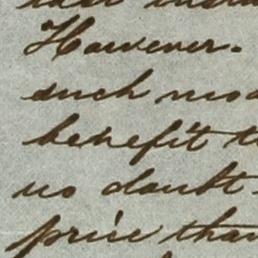 However.
such
benefit
no doubt
price than